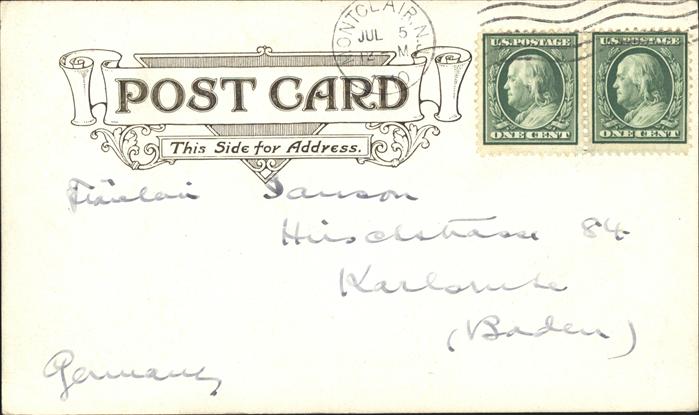 MONTCLAIR, N.J.
JUL 5
12 M
U.S. POSTAGE
ONE CENT
U.S. POSTAGE
ONE CENT
POST CARD
This Side for Address.
Fräulein Janson
Hirschstrasse 84
Karlsruhe
(Baden)
Germany